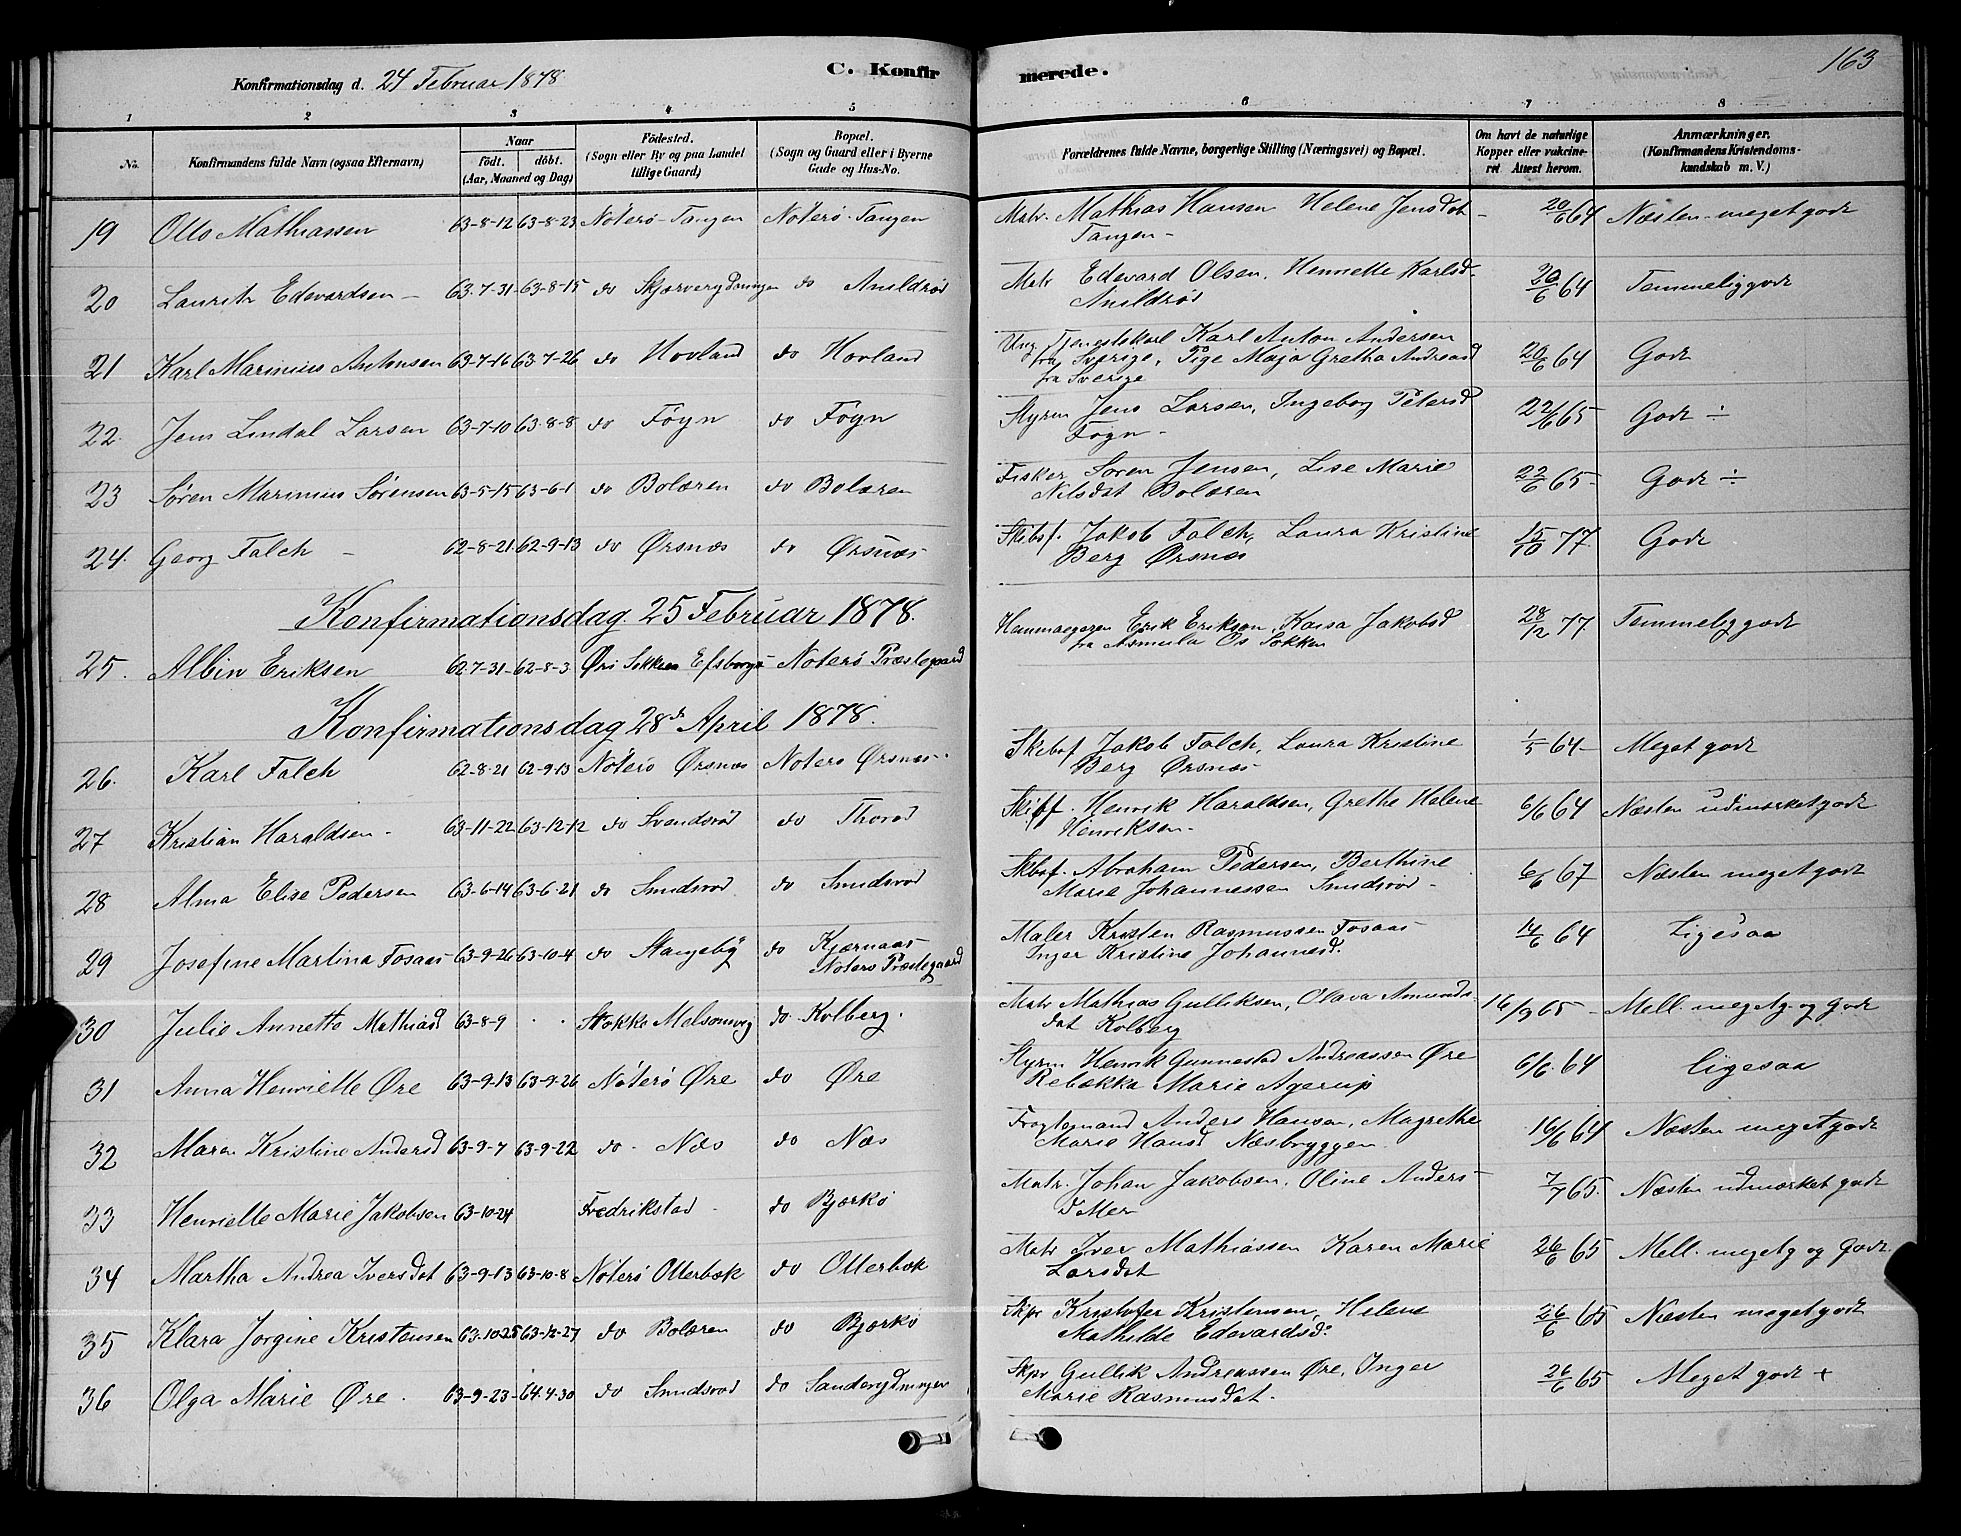 163
Konfirmationsdag d. 24 Februar 1878
C. Konfirmerede.
1 2 3 4 5 6 7 8
No. Konfirmandens fulde Navn (ogsaa Efternavn) Naar födt. döbt. (Aar, Maaned og Dag) Födested. (Sogn eller By og paa Landet tillige Gaard) Bopæl. (Sogn og Gaard eller i Byerne Gade og Hus-No. Forældrenes fulde Navne, borgerlige Stilling (Næringsvei) og Bopæl. Om havt de naturlige Kopper eller vakcineret Attest herom. Anmærkninger. (Konfirmandens Kristendomskundskab m. V.)
19 Otto Mathiassen 63-8-12 63-8-23 Nøterö Tangen Nøterö Tangen Matr. Mathias Hansen Helene Jensdat Tangen - 20/6 64 Næsten meget godt
20 Lauritz Edevardsen - 63-7-31 63-8-15 do do Matr Edevard Olsen, Henriette Karlsd. 30/6 64 Temmelig godt
21 Karl Marinius Antonsen 63-7-16 63-7-26 do Hovland do Hovland Ung. Tjenestekarl Karl Anton Andersen fra Sverige, Pige Maja Gretha Andreasd fra Sverige 20/6 64 Godt
22. Jens Lindal Larsen 63-7-10 63-8-8 do Föyn do Föyn Styrm Jens Larsen, Ingeborg Petersd Föyn - 22/6 65 Godt ÷
23 Sören Marinius Sörensen 63-5-15 63-6-1 do Bolæren do Bolæren Fisker Sören Jensen, Lise Marie Nilsdat Bolæren 22/6 65 - Godt ÷
24. Georg Falch - 62-8-21 62-9-13 do Ørsnæs do Ørsnæs Skibsf. Jakob Falch, Laura Kristine Berg Ørsnæs 15/10 77 Godt
Konfirmationsdag 25 Februar 1878.
25. Albin Eriksen 62-7-31 62-8-3 Nøterö Præstegaard Erik Erikson, Kaisa Jakobsd fra 28/12 77 Temmelig godt
Konfirmationsdag 28de April 1878.
26. Karl Falch 62-8-21 62-9-13 Nøterö Ørsnæs Nøterö Ørsnæs Skibsf Jakob Falch, Laura Kristine Berg Ørsnæs 1/5 64 - Meget godt
27 Kristian Haraldsen - 63-11-22 63-12-12 do Svendsrød do Thorød Skibsf. Henrik Haraldsen, Grethe Helene Henriksen - 6/6 64 Næsten udmærket godt
28 Alma Elise Pedersen 63-6-14 63-6-21 do Smidsrød do Smidsrød Skibsf. Abraham Pedersen, Berthine Marie Johannessen Smidsrød - 6/6 67 Næsten meget godt
29 Josefine Martina Fosaas 63-9-26 63-10-4 do Stangeby do Kjærnaas Nøterö Præstegaard Maler Kristen Rasmussen Fosaas Inger Kristine Johannesd. 14/6 64 Ligesaa
30 Julie Annette Mathiasd 63-8-9 . . Stokke Melsomvig do Kolberg. Matr Mathias Gulliksen, Olava Amundsdat Kolberg 16/9 65 - Mell. meget g og godt
31 Anna Henriette Øre 63-9-13 63-9-26 Nøterö Øre do Øre Styrm Henrik Gunnestad Andreassen Øre Rebekka Marie Agerup 6/6 64 ligesaa
32 Maren Kristine Andersd 63-9-7 63-9-22 do - Næs do Næs Fragtemand Anders Hansen, Magrethe Marie Hansd Næsbryggen 16/6 64 Næsten meget godt
33 Henriette Marie Jakobsen 63-10-24 Fredrikstad - do Bjerkö Matr. Johan Jakobsen, Oline Andersd Mer 7/7 65. Næsten udmærket godt
34 Martha Andrea Iversdat 63-9-13 63-10-8 Nøterö Otterbæk do Otterbæk Matr Iver Mathiassen Karen Marie Larsdat 26/6 65 Mell. meget g og godt.
35 Klara Jorgine Kristensen 63-10-25 63-12-27 do Bolæren do Bjerkö Skpr Kristofer Kristensen, Helene Mathilde Edevardsd: 26/6 65 Næsten meget godt
36 Olga Marie Øre . 63-9-23 - 64-4-30 do Smidsrød do Skpr Gullik Andreassen Øre, Inger Marie Rasmusdat. 26/6 65 Meget godt +